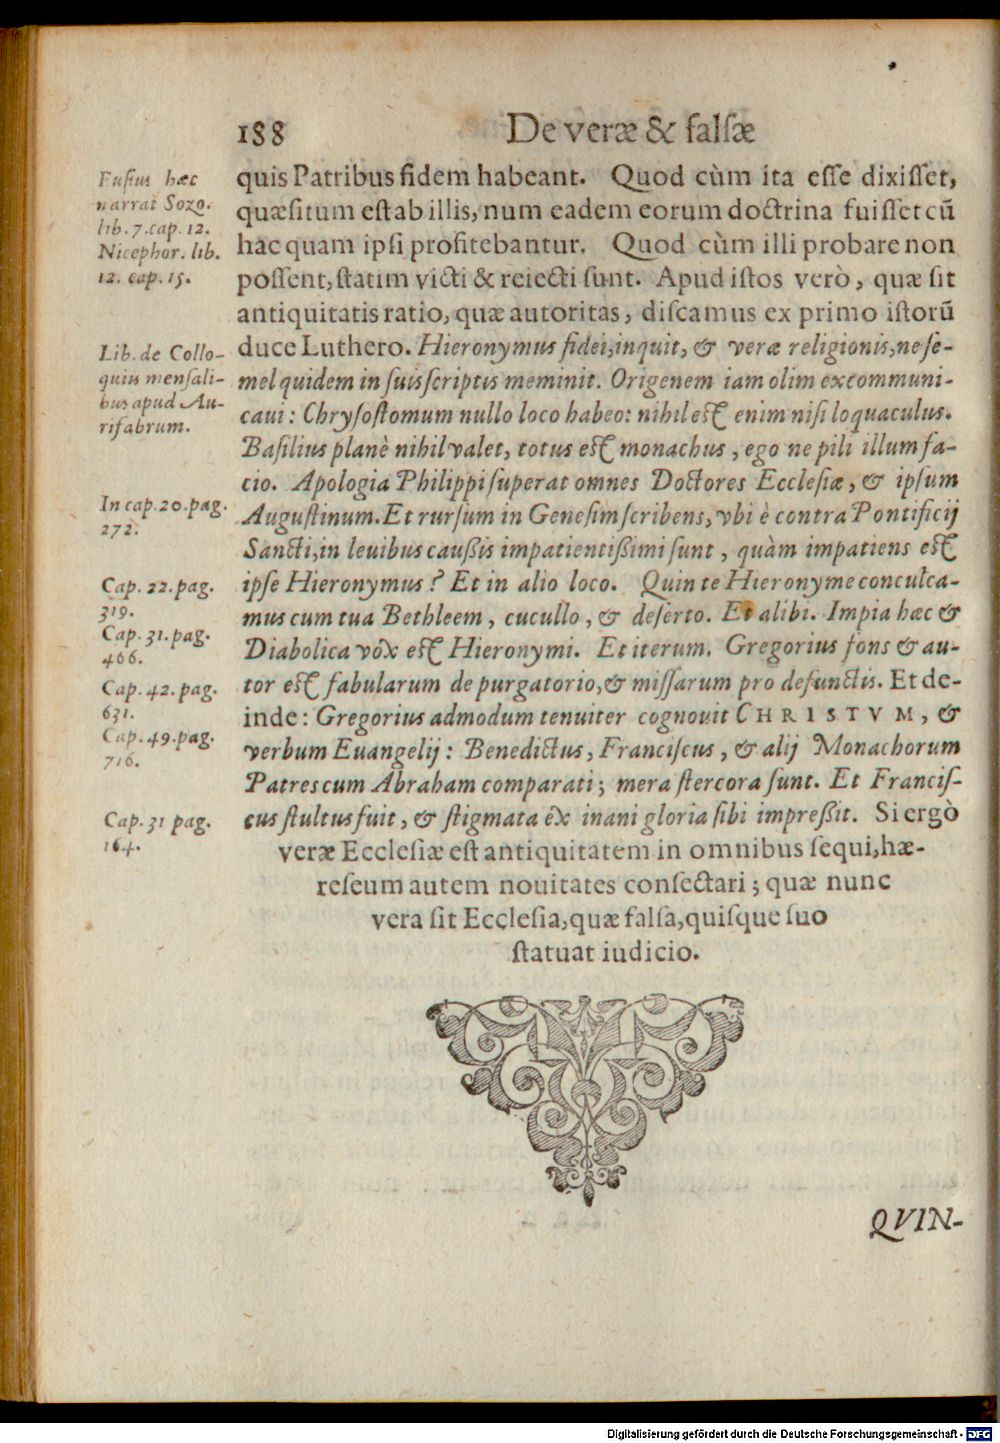 188 De veræ & falsæ
quis Patribus fidem habeant. Quod cùm ita esse dixisset,
quæsitum est ab illis, num eadem eorum doctrina fuisset cũ
hac quam ipsi profitebantur. Quod cùm illi probare non
possent, statim victi & reiecti sunt. Apud istos verò, quæ sit
antiquitatis ratio, quæ autoritas, discamus ex primo istorũ
duce Luthero. Hieronymus fidei, inquit, & veræ religionis, ne se-
mel quidem in suis scriptis meminit. Origenem iam olim excommuni-
caui: Chrysostomum nullo loco habeo: nihil est enim nisi loquaculus.
Basilius planè nihil valet, totus est monachus, ego ne pili illum fa-
cio. Apologia Philippi superat omnes Doctores Ecclesiæ, & ipsum
Augustinum. Et rursum in Genesim scribens, vbi è contra Pontificij
Sancti, in leuibus caußis impatientißimi sunt, quàm impatiens est
ipse Hieronymus? Et in alio loco. Quin te Hieronyme conculca-
mus cum tua Bethleem, cucullo, & deserto. Et alibi. Impia hæc &
Diabolica vox est Hieronymi. Et iterum. Gregorius fons & au-
tor est fabularum de purgatorio, & missarum pro defunctis. Et de-
inde: Gregorius admodum tenuiter cognouit CHRISTVM, &
verbum Euangelij: Benedictus, Franciscus, & alij Monachorum
Patres cum Abraham comparati; mera stercora sunt. Et Francis-
cus stultus fuit, & stigmata ex inani gloria sibi impreßit. Si ergò
veræ Ecclesiæ est antiquitatem in omnibus sequi, hæ-
reseum autem nouitates consectari; quæ nunc
vera sit Ecclesia, quæ falsa, quisque suo
statuat iudicio.
QVIN-
Fusius hæc
narrat Sozo.
lib. 7. cap. 12.
Nicephor. lib.
12. cap. 15.
Lib. de Collo-
quiis mensali-
bus apud Au-
rifabrum.
In cap. 20. pag.
272.
Cap. 22. pag.
319.
Cap. 31. pag.
466.
Cap. 42. pag.
631.
Cap. 49. pag.
716.
Cap. 31 pag.
164.
Digitalisierung gefördert durch die Deutsche Forschungsgemeinschaft - DFG